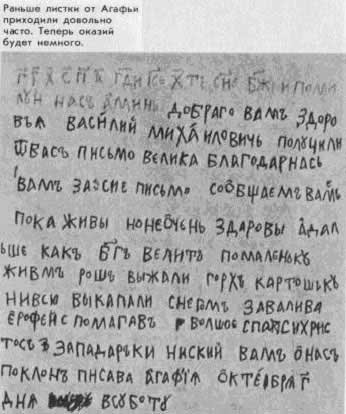 Раньше листки от Агафьи
приходили довольно
часто. Теперь оказий
будет немного.
насъ аминь доб҃раго вамъ здоро
вья василий михаиловичь получили
ѿвасъ письмо велика благодарнась
вамъ засие письмо сообщаемъ вамъ
пока живы нонеочень здаровы адал
ьше какъ бг҃ъ велитъ помаленькъ
живмъ рошь выжали горхъ картошькъ
нивсю выкапали снегмъ завалива
ерофейс помагавъ болшое спатсихрис
тосъ западаръки ниский вамъ онасъ
поклонъ писава агафия октебря г҃
дня всуботу